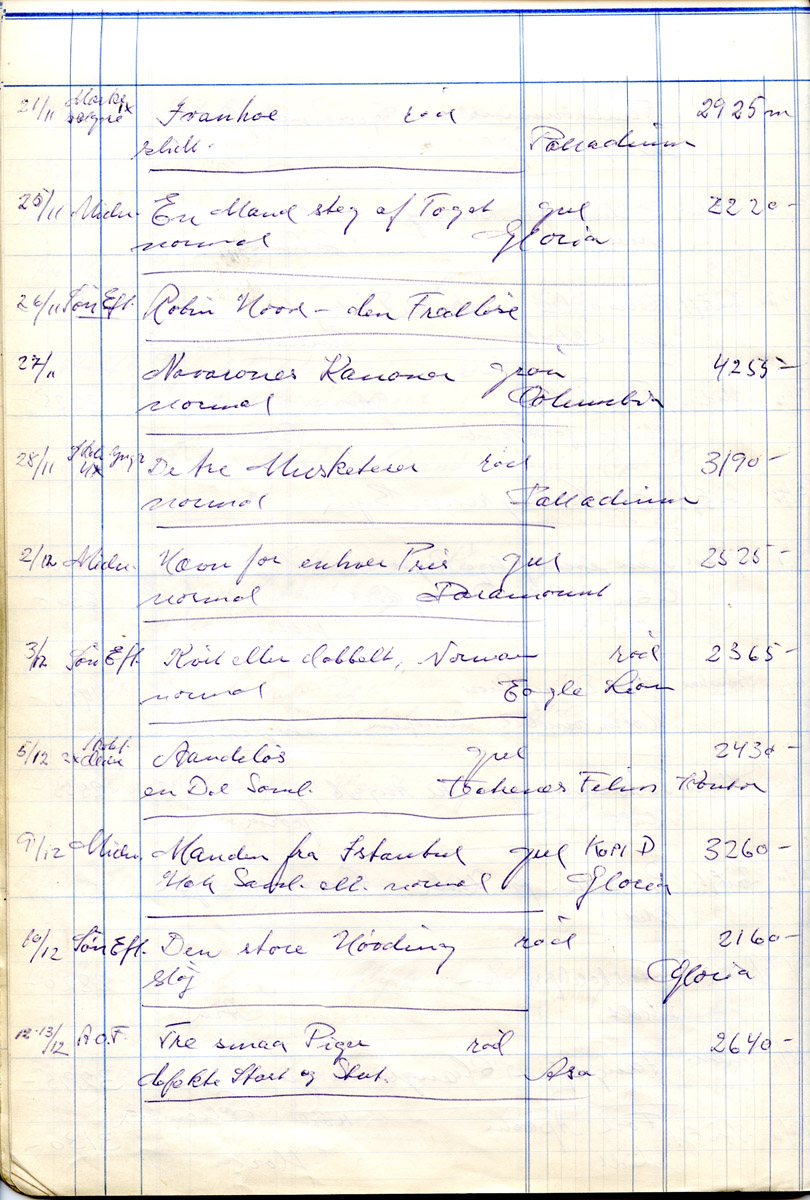 21/11 Ivanhoe rød 2925 m
slidt. Palladium
25/11 Midn. En Mand steg af Toget gul 2220 -
normal Gloria
26/11 Søn Eft. Robin Hood - den Fredløse
27/11 Navarones Kanoner grøn 4255 -
normal Columbia
28/11 De tre Musketerer rød 3190 -
normal Palladium
2/12 Midn. Hævn for enhver Pris gul 2525 -
normal Paramount
3/12 Søn Eft. Kvit eller dobbelt, Norman rød 2365 -
normal Eagle Lion
5/12 2x Aandeløs gul 2430 -
en Del Saml. Film Kontor
9/12 Midn. Manden fra Istanbul gul Kopi D 3260 -
Saml. ell. normal Gloria
10/12 Søn Eft. Den store Høvding rød 2160 -
Støj Gloria
12-13/12 A.O.F. Tre smaa Piger rød 2640 -
defekte Start og Slut. Asa